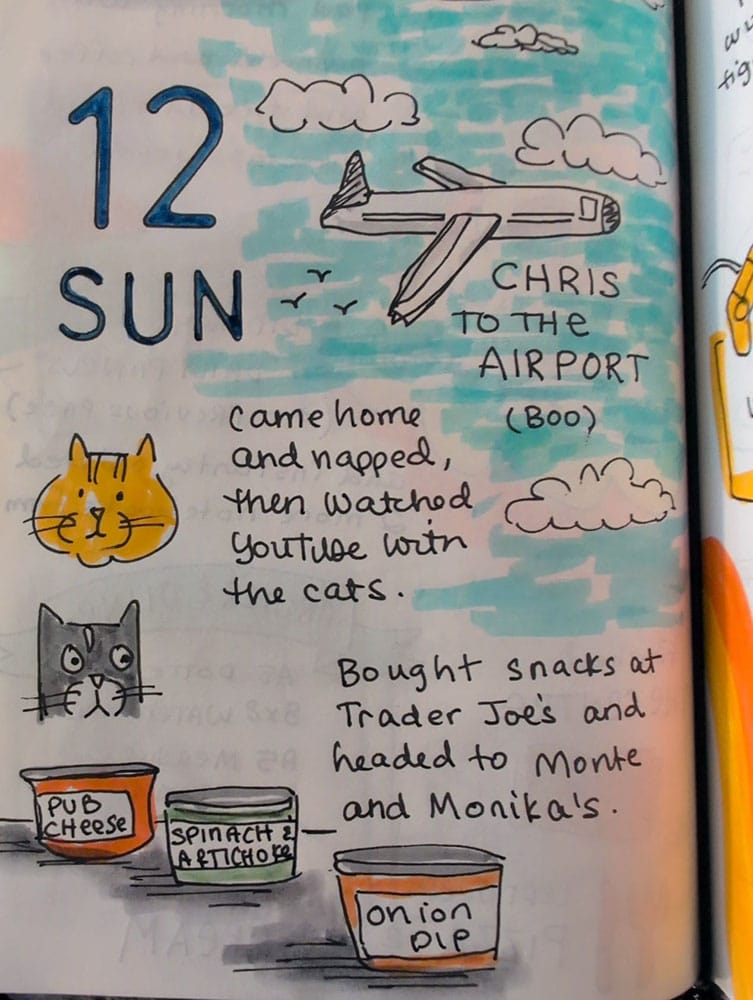 12
SUN
CHRIS
TO THE
AIRPORT
(BOO)
came home
and napped,
then watched
YouTube with
the cats.
Bought snacks at
Trader Joe's and
headed to Monte
and Monika's.
PUB
CHEESE
SPINACH &
ARTICHOKE
ONION
DIP